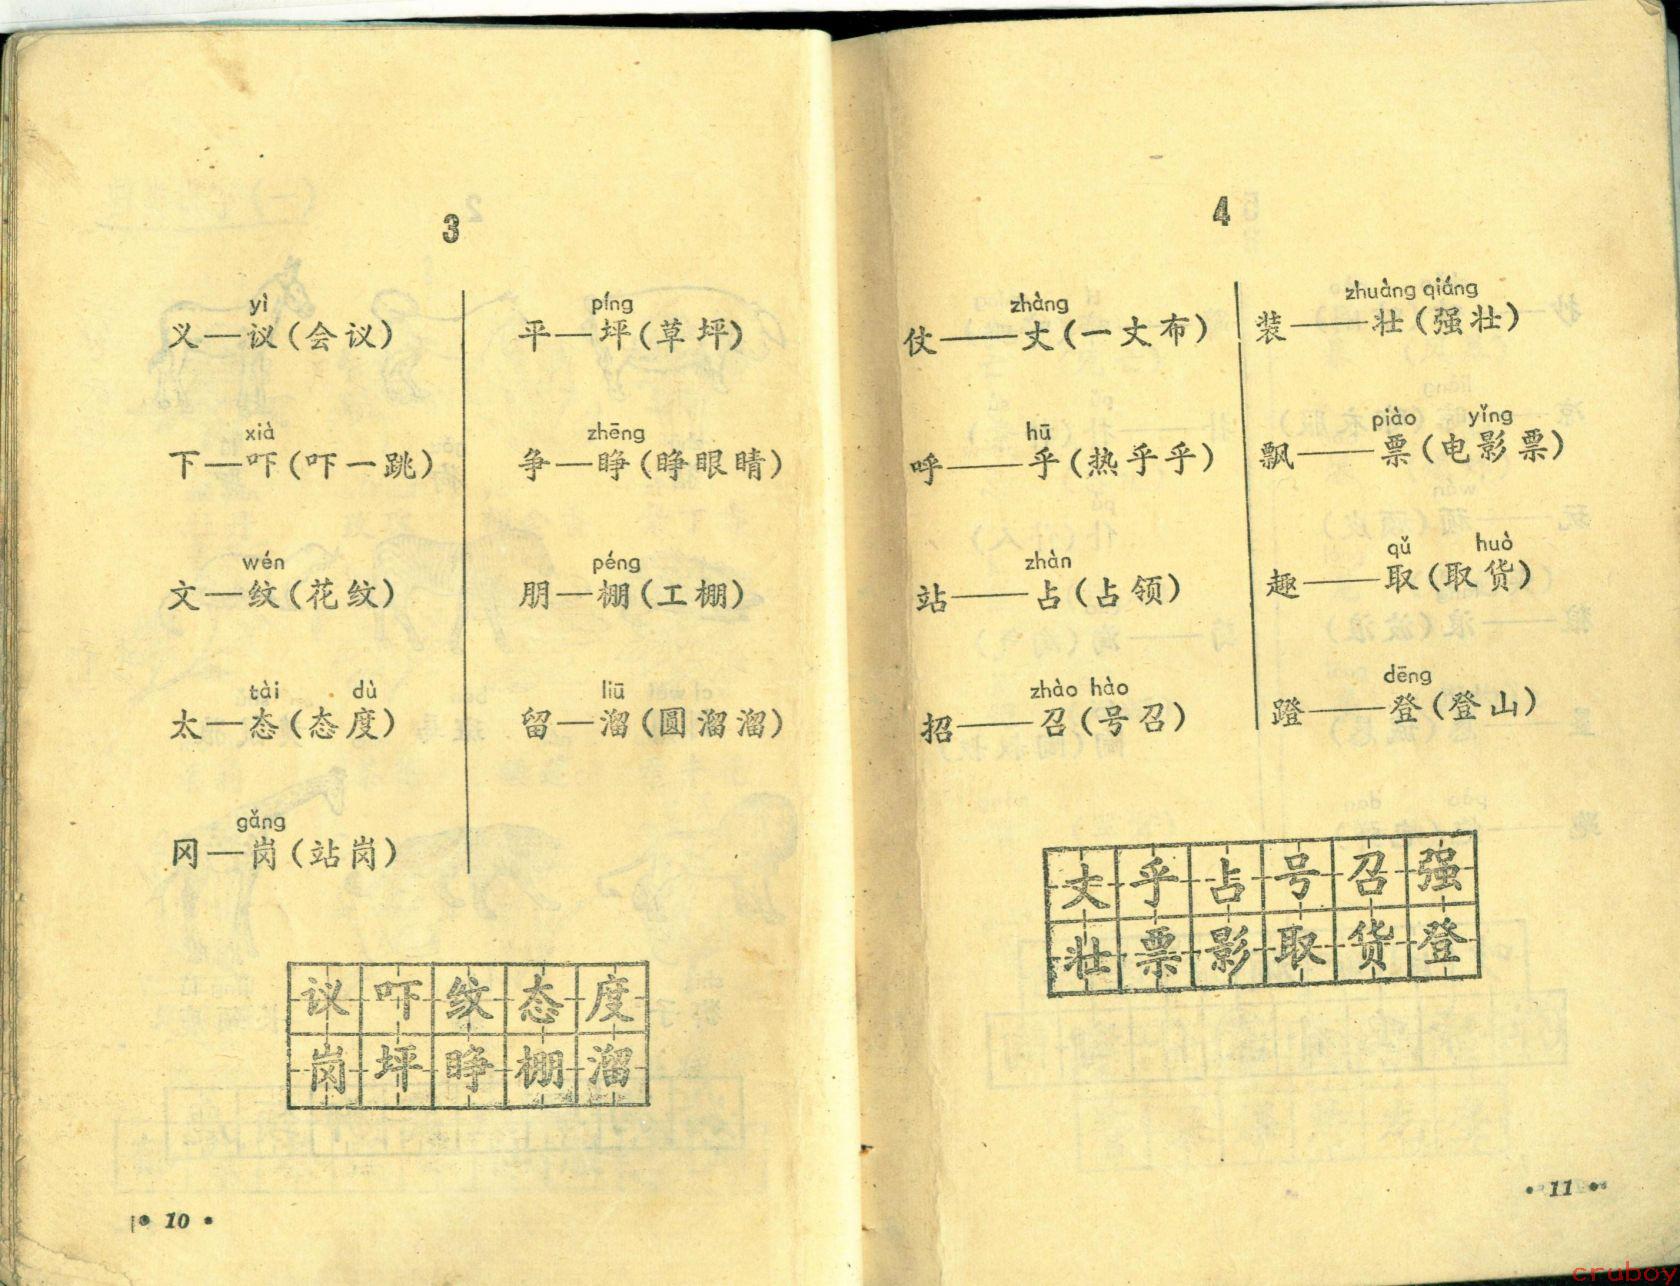 3
yì
义—议(会议)
xià
下—吓(吓一跳)
wén
文—纹(花纹)
tài dù
太—态(态度)
gǎng
冈—岗(站岗)
píng
平—坪(草坪)
zhēng
争—睁(睁眼睛)
péng
朋—棚(工棚)
liū
留—溜(圆溜溜)
议吓纹态度
岗坪睁棚溜
• 10 •
4
zhàng
仗——丈(一丈布)
hū
呼——乎(热乎乎)
zhàn
站——占(占领)
zhào hào
招——召(号召)
zhuàng qiáng
装——壮(强壮)
piào yǐng
飘——票(电影票)
qǔ huò
趣——取(取货)
dēng
蹬——登(登山)
丈乎占号召强
壮票影取货登
• 11 •
cruboy